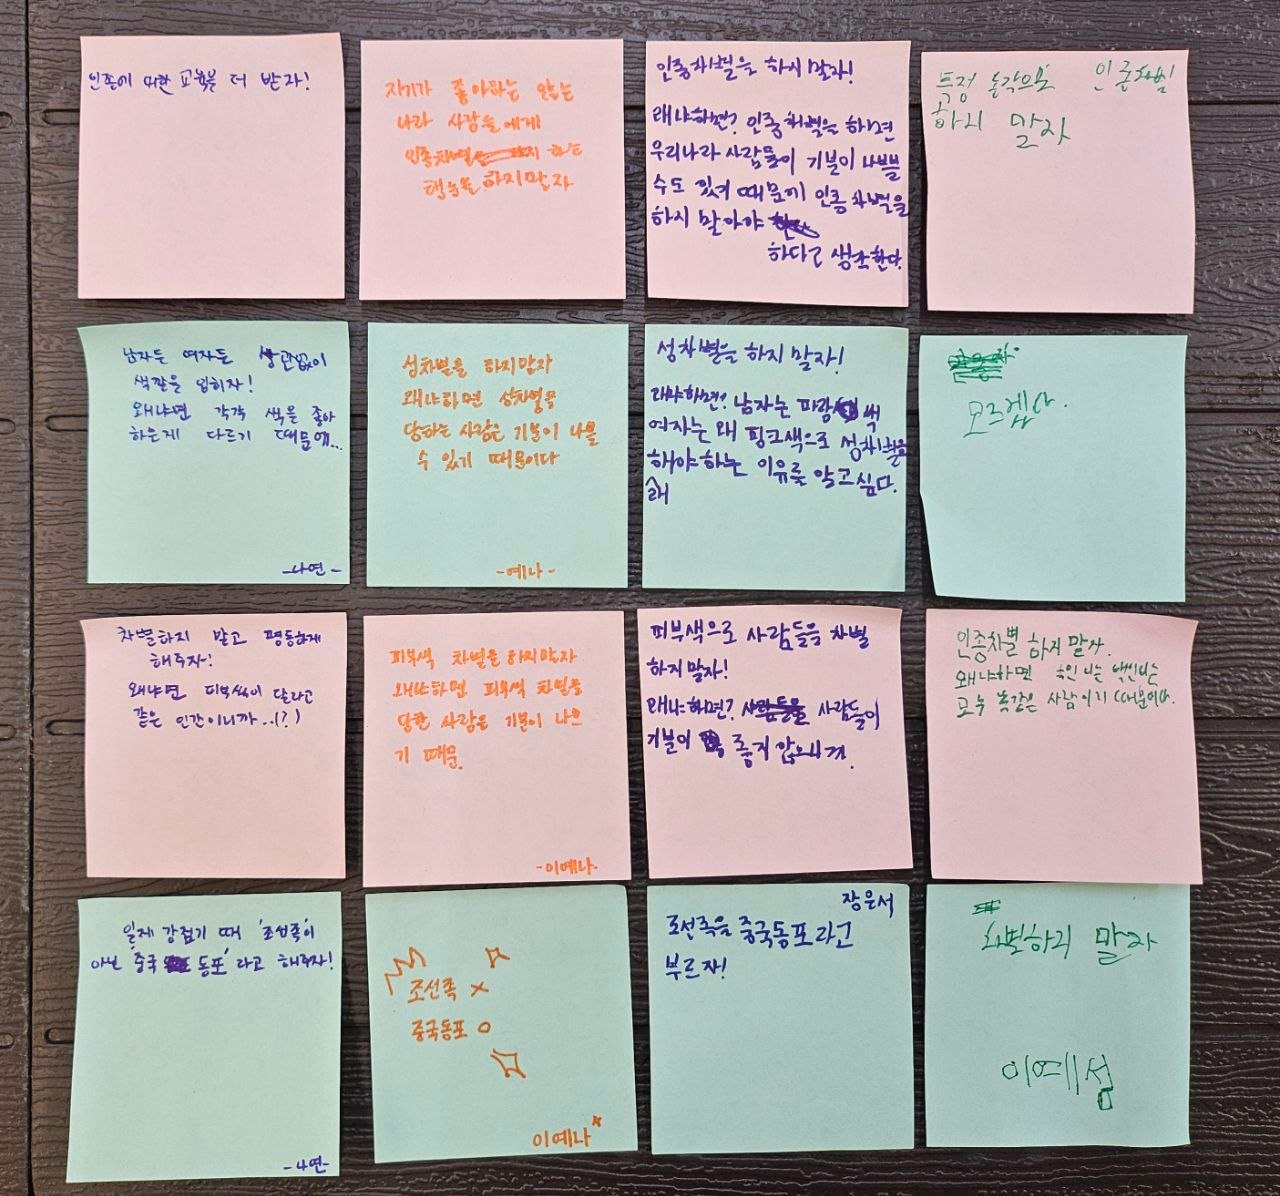 인종에 대한 교육을 더 받자!
자기가 좋아하는 않는
나라 사람들에게
인종차별 하는
행동을 하지말자
인종차별을 하지 말자!
왜냐하면? 인종차별을 하면
우리나라 사람들이 기분이 나쁠
수도 있기 때문에 인종차별을
하지 말아야
하다고 생각한다.
특정 동작으로 인종차별
하지 말자
남자든 여자든 상관없이
색깔을 입히자!
왜냐면 각각 색을 좋아
하는게 다르기 때문에...
-나연-
성차별을 하지말자
왜냐하면 성차별을
당하는 사람은 기분이 나쁠
수 있기 때문이다
-예나-
성차별을 하지 말자!
왜냐하면? 남자는 파랑 색
여자는 왜 핑크색으로 성차별을
해야하는 이유를 알고싶다.
모르겠다.
차별하지 말고 평등하게
해주자!
왜냐면 피부색이 달라고
같은 인간이니까..(?)
피부색 차별을 하지말자
왜냐하면 피부색 차별을
당한 사람은 기분이 나쁘
기 때문.
-이예나-
피부색으로 사람들을 차별
하지 말자!
왜냐하면? 사람들이
기분이 좋지 않으니까.
인종차별 하지 말자.
왜냐하면 흑인 나는 백인 나는
모두 똑같은 사람이기 때문이다.
일제 강점기 때 '조선족'이
아닌 '중국 동포'라고 해주자!
-나연-
조선족 X
중국동포 O
이예나
장은서
조선족을 중국동포라고
부르자!
차별하지 말자
이예섬